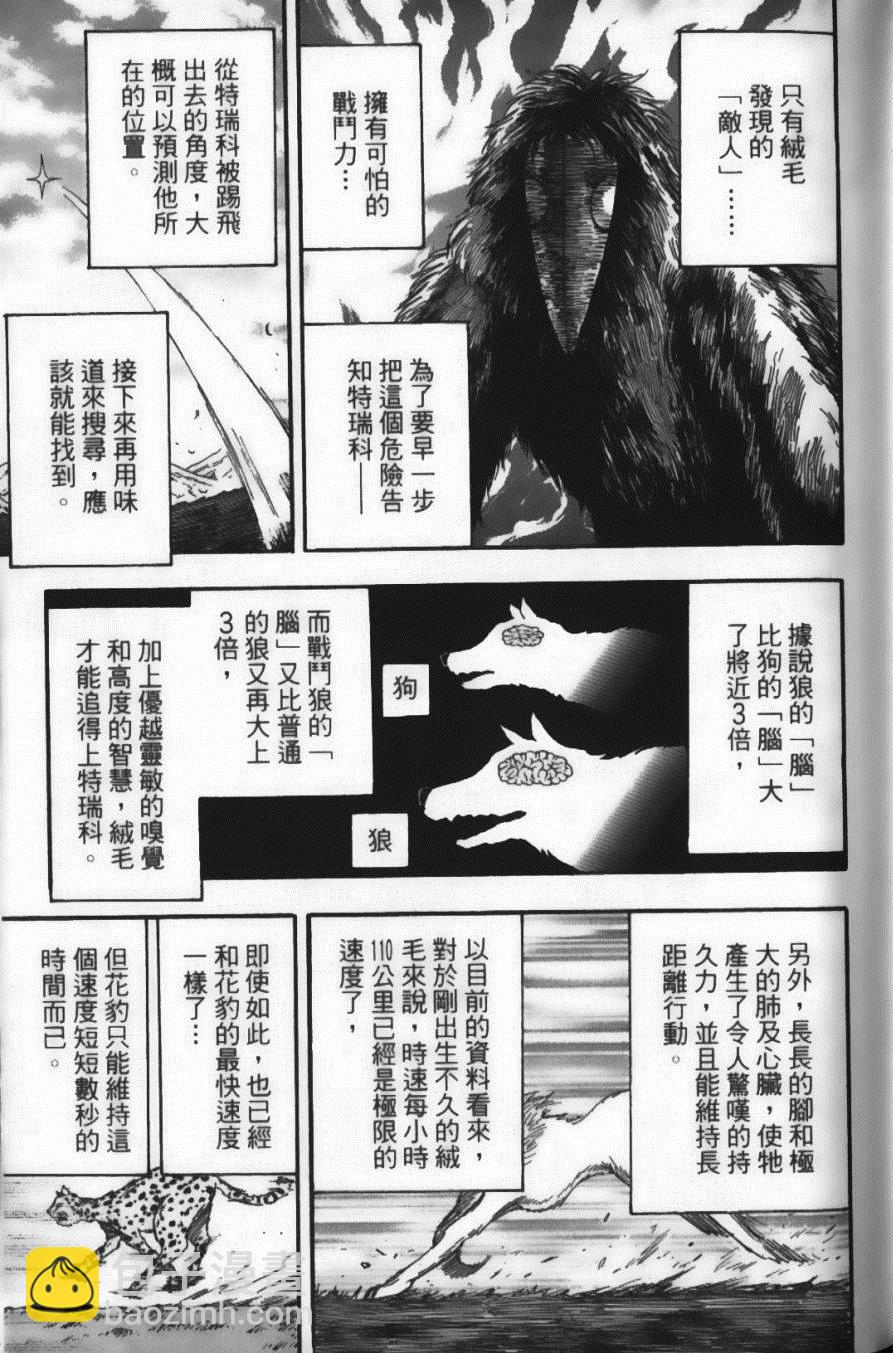 只有絨毛
發現的
「敵人」……
擁有可怕的
戰鬥力…
為了要早一步
把這個危險告
知特瑞科——
從特瑞科被踢飛
出去的角度，大
概可以預測他所
在的位置。
接下來再用味
道來搜尋，應
該就能找到。
據說狼的「腦」
比狗的「腦」大
了將近3倍，
狗
狼
而戰鬥狼的「
腦」又比普通
的狼又再大上
3倍，
加上優越靈敏的嗅覺
和高度的智慧，絨毛
才能追得上特瑞科。
另外，長長的腳和極
大的肺及心臟，使牠
產生了令人驚嘆的持
久力，並且能維持長
距離行動。
以目前的資料看來，
對於剛出生不久的絨
毛來說，時速每小時
110公里已經是極限的
速度了，
即使如此，也已經
和花豹的最快速度
一樣了…
但花豹只能維持這
個速度短短數秒的
時間而已。
包子漫畫
baozimh.com